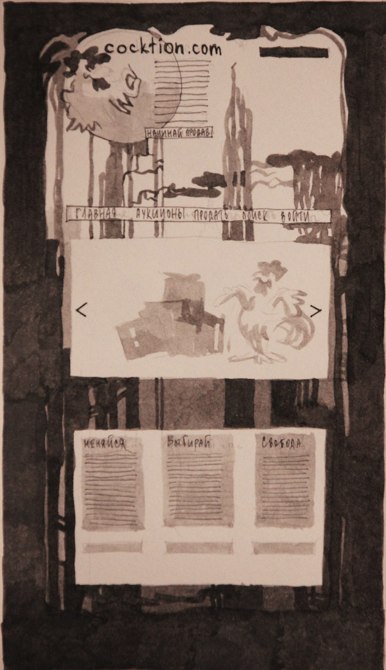 cocktion.com
НАЧИНАЙ ПРОДАВ
ГЛАВНАЯ АУКЦИОНЫ ПРОДАТЬ ПОИСК ВОЙТИ
<
>
МЕНЯЙСЯ ВЫБИРАЙ СВОБОДА